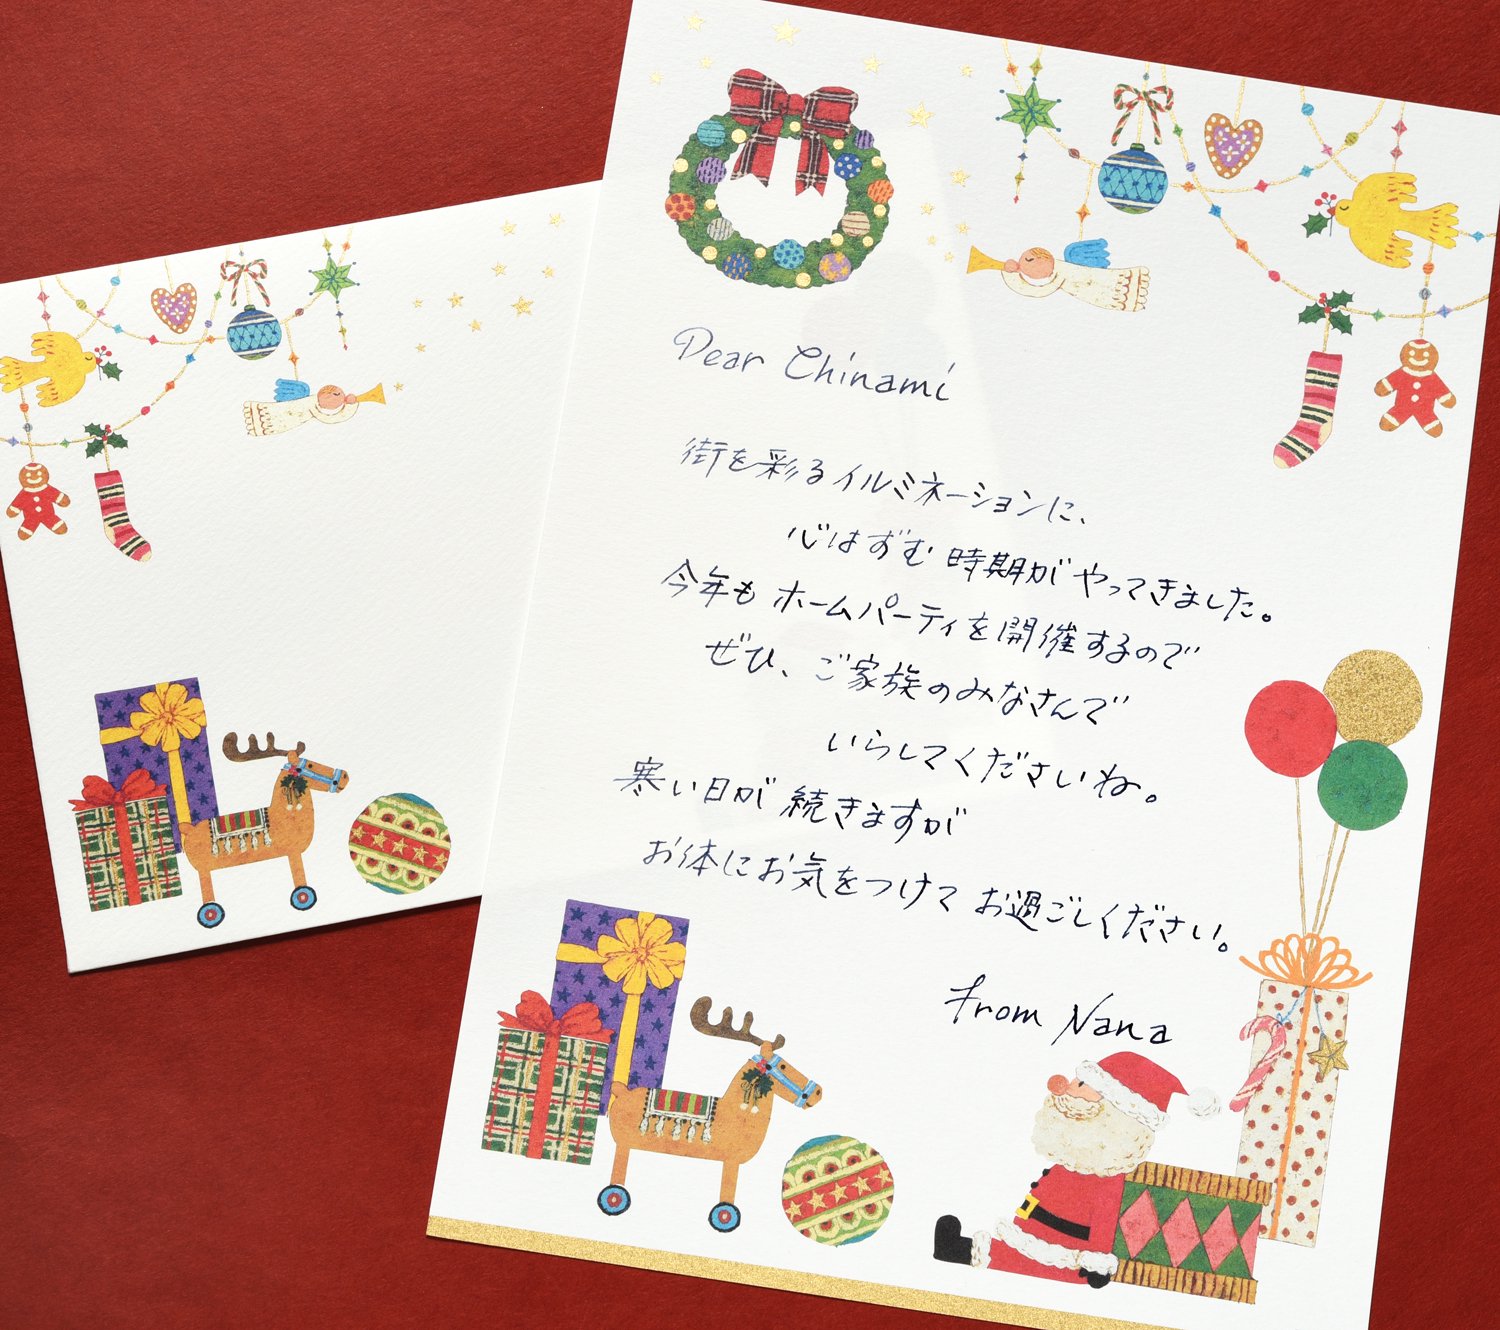 Dear Chinami
街を彩るイルミネーションに、
心はずむ時期がやってきました。
今年もホームパーティを開催するので
ぜひ、ご家族のみなさんで
いらしてくださいね。
寒い日が続きますが
お体にお気をつけてお過ごしください。
From Nana